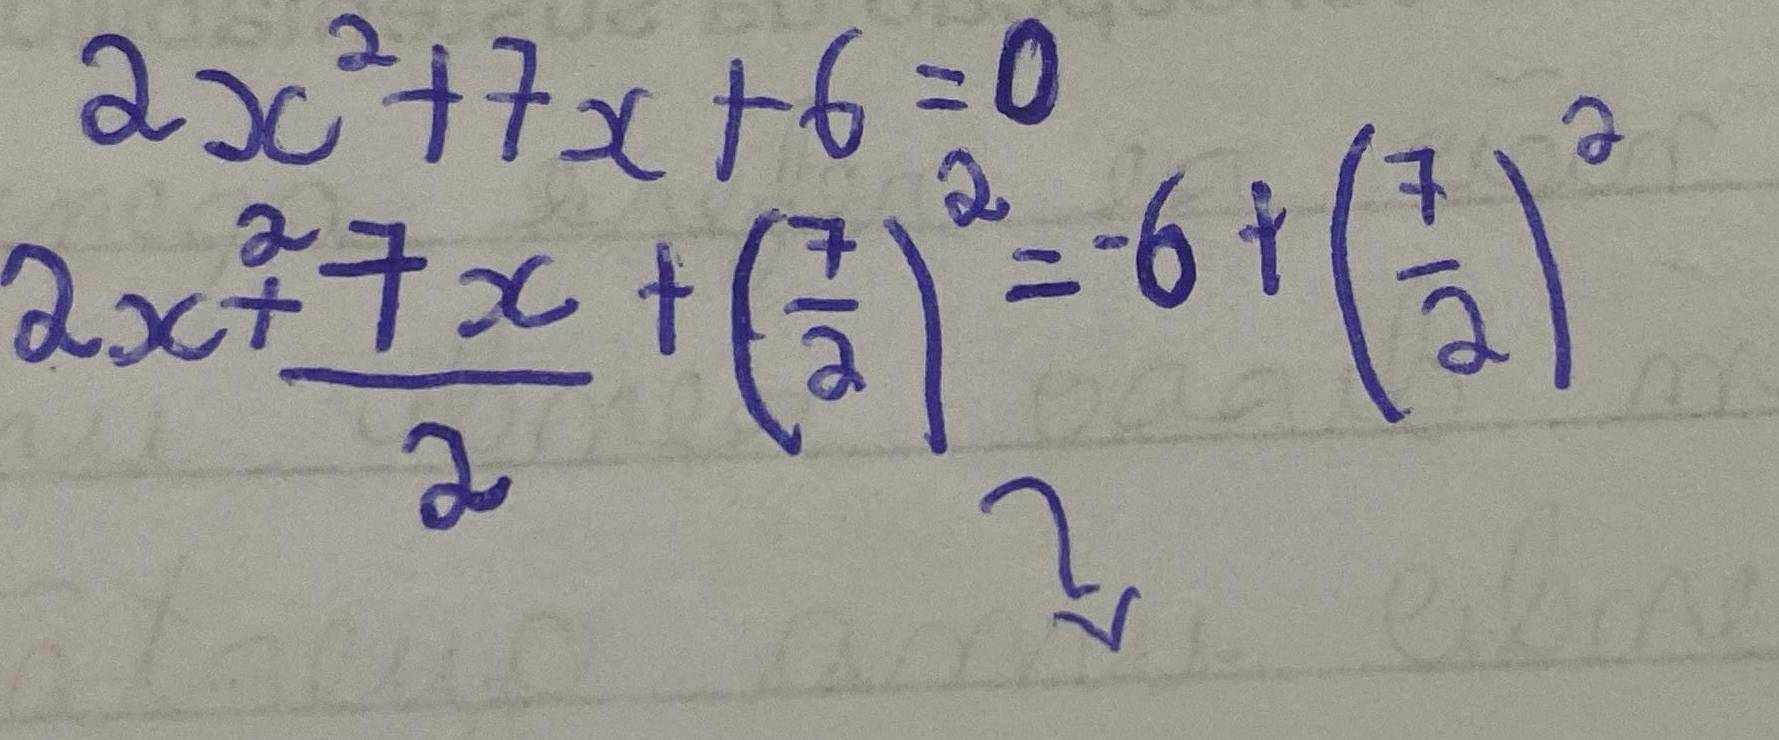 2x²+7x+6=0
2x²+7x/2+(7/2)²=-6+(7/2)²